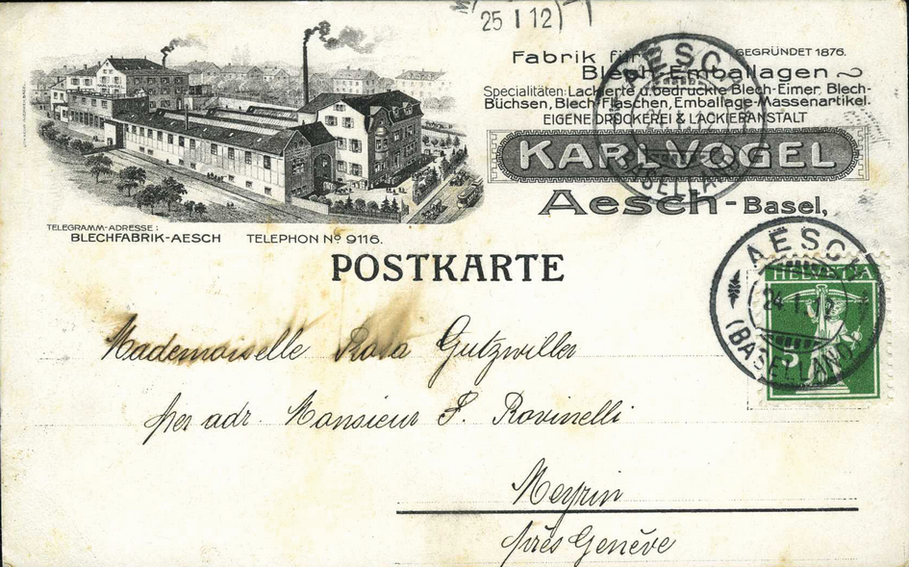 25 I 12)
GEGRÜNDET 1876.
Fabrik für
Blech-Emballagen
Specialitäten: Lackierte u. bedruckte Blech-Eimer, Blech-
Büchsen, Blech-Flaschen, Emballage-Massenartikel.
EIGENE DRUCKEREI & LACKIERANSTALT
KARL VOGEL
Aesch-Basel,
AESCH
(BASELLAND)
TELEGRAMM-ADRESSE:
BLECHFABRIK-AESCH TELEPHON No 9116.
POSTKARTE
AESCH
24. I. 12
(BASELLAND)
HELVETIA
5
Mademoiselle Rosa Gutzwiller
per adr. Monsieur S. Rovinelli
Meyrin
près Genève